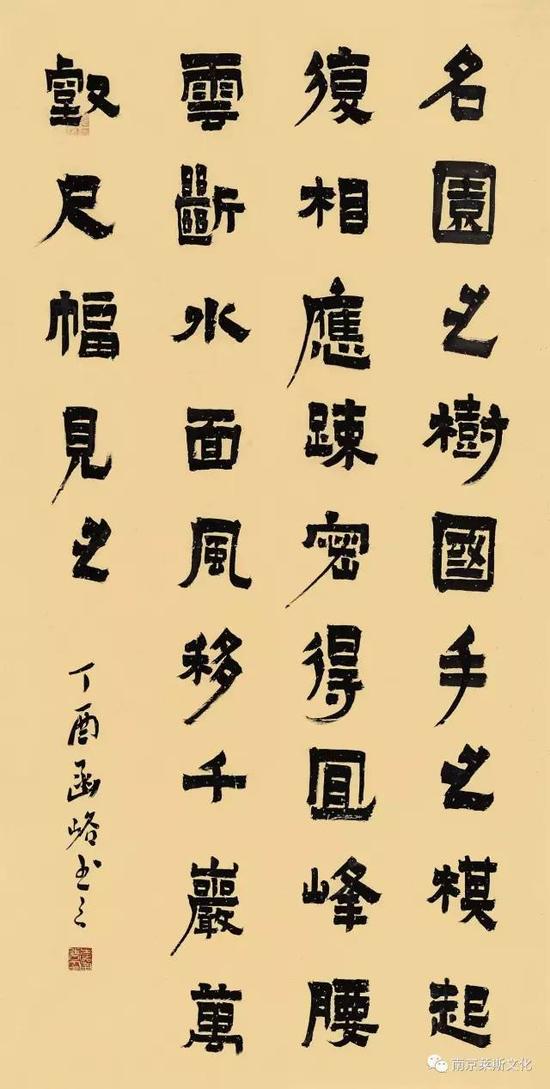 名園之樹國手之棋起
復相應踈密得宜峰腰
雲斷水面風移千巖萬
壑尺幅見之
丁酉函峪书之
南京莱斯文化